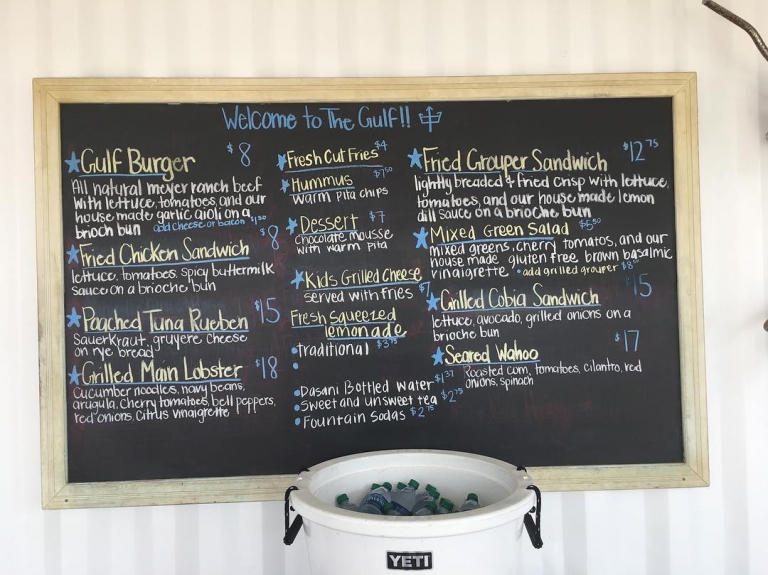 Welcome to The Gulf!!
Gulf Burger $8
All natural meyer ranch beef
with lettuce, tomatoes, and our
house made garlic aioli on a
brioch bun add cheese or bacon $1.50
Fried Chicken Sandwich $8
lettuce, tomatoes, spicy buttermilk
sauce on a brioche bun
Poached Tuna Rueben $15
Sauerkraut, gruyere cheese
on rye bread
Grilled Main Lobster $18
cucumber noodles, navy beans,
arugula, cherry tomatoes, bell peppers,
red onions, citrus vinaigrette
Fresh Cut Fries $4
Hummus $7.50
warm pita chips
Dessert $7
chocolate mousse
with warm pita
Kids Grilled Cheese
served with fries $7
Fresh squeezed
lemonade
traditional $3.75
Dasani Bottled water $1.37
Sweet and unsweet tea $2.75
Fountain Sodas $2.75
Fried Grouper Sandwich $12.75
lightly breaded & fried crisp with lettuce,
tomatoes, and our house made lemon
dill sauce on a brioche bun
Mixed Green Salad $5.50
mixed greens, cherry tomatoes, and our
house made gluten free brown basalmic
vinaigrette • add grilled grouper $8
Grilled Cobia Sandwich $15
lettuce, avocado, grilled onions on a
brioche bun
Seared Wahoo $17
Roasted corn, tomatoes, cilantro, red
onions, spinach
YETI